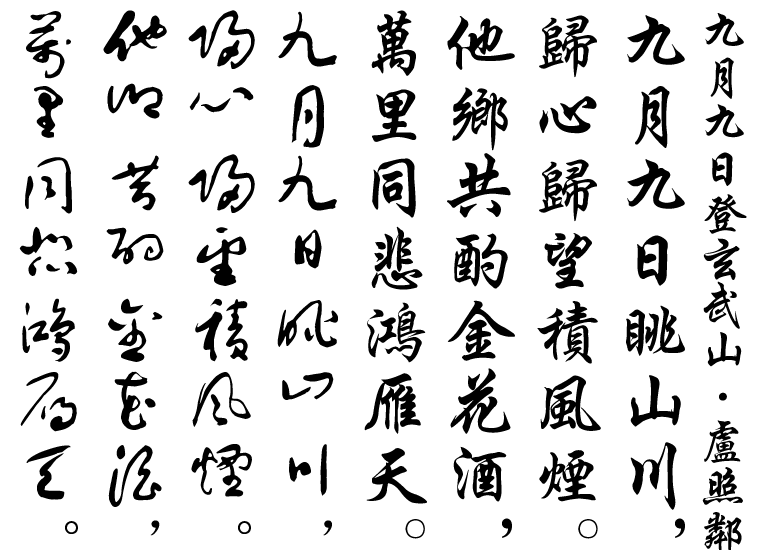 九月九日登玄武山·盧照鄰
九月九日眺山川，
歸心歸望積風煙。
他鄉共酌金花酒，
萬里同悲鴻雁天。
九月九日眺山川，
歸心歸望積風煙。
他鄉共酌金花酒，
萬里同悲鴻雁天。